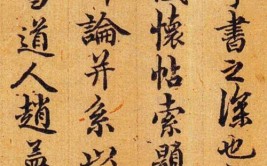 書之深也
懷帖索題
論并系以
道人趙孟